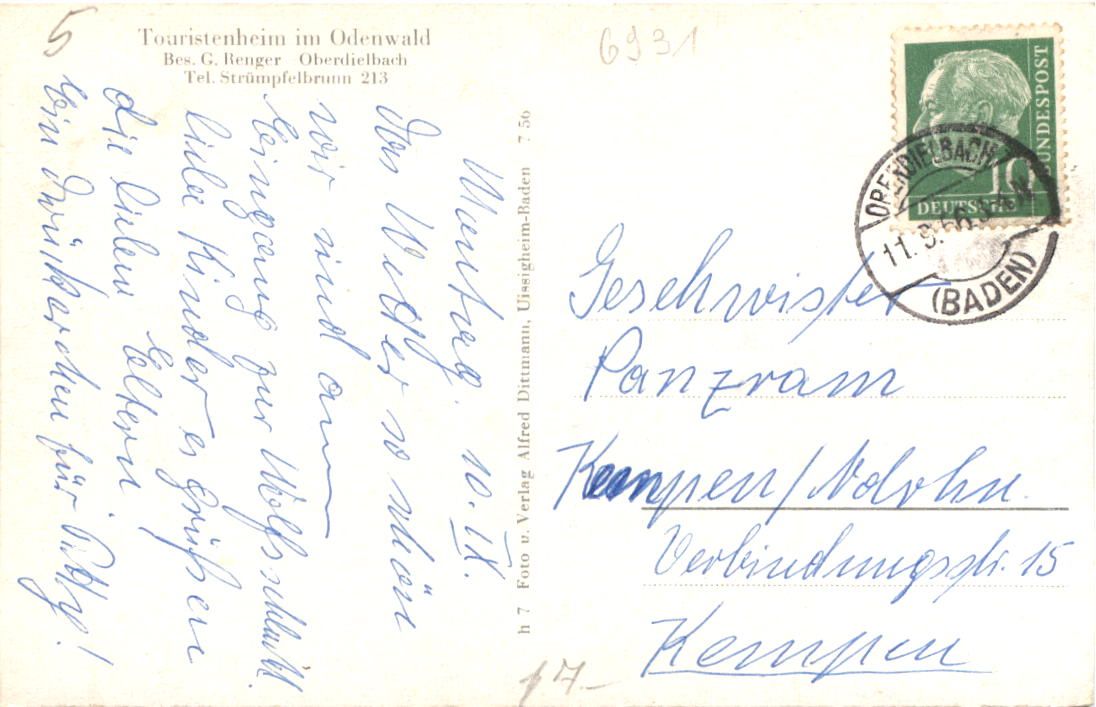 5
Touristenheim im Odenwald
Bes. G. Renger Oberdielbach
Tel. Strümpfelbrunn 213
6931
Montag. 10.IX.
Das Wetter so schön
wir sind am
Eingang zur Wolfsschlucht.
liebe Kinder es grüßen
die lieben Eltern.
Ein Drückerchen für
h 7 Foto u. Verlag Alfred Dittmann, Uissigheim-Baden 7 56
DEUTSCHE
BUNDESPOST
10
OBERDIELBACH
11.9.56
(BADEN)
Geschwister
Panzram
Kempen/Ndrhn.
Verbindungsstr. 15
Kempen
17.-